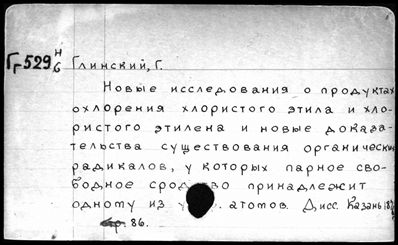 Гг529 Н/6 Глинский, Г.
Новые исследования о продуктах
охлорения хлористого этила и хло-
ристого этилена и новые доказа-
тельства существования органически
радикалов, у которых парное сво-
бодное сродство принадлежит
одному из атомов. Дисс. Казань,
86.